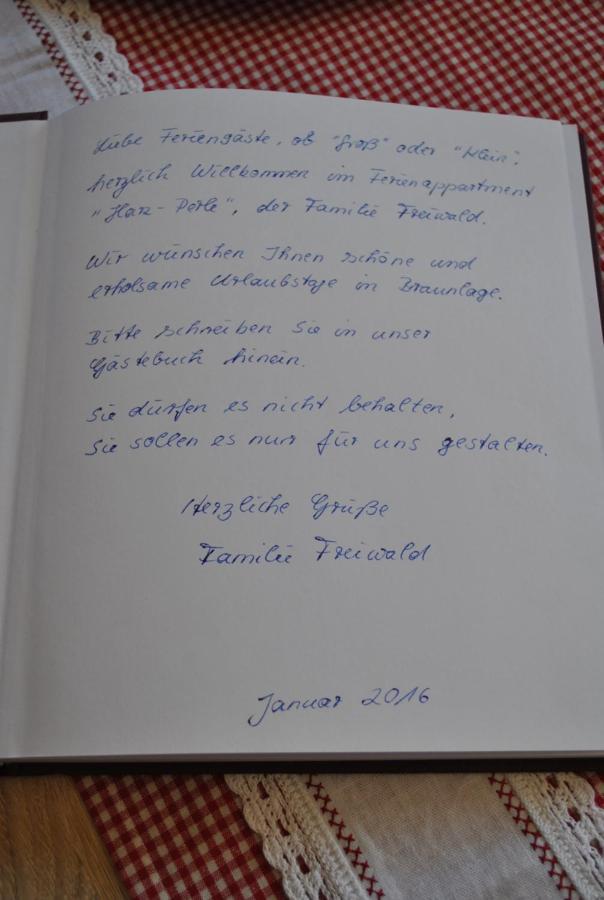 Liebe Feriengäste, ob "Groß" oder "Klein".
herzlich Willkommen im Ferienappartment
"Harz-Perle", der Familie Freiwald.
Wir wünschen Ihnen schöne und
erholsame Urlaubstage in Braunlage.
Bitte schreiben Sie in unser
Gästebuch hinein.
Sie dürfen es nicht behalten,
Sie sollen es nur für uns gestalten.
Herzliche Grüße
Familie Freiwald
Januar 2016